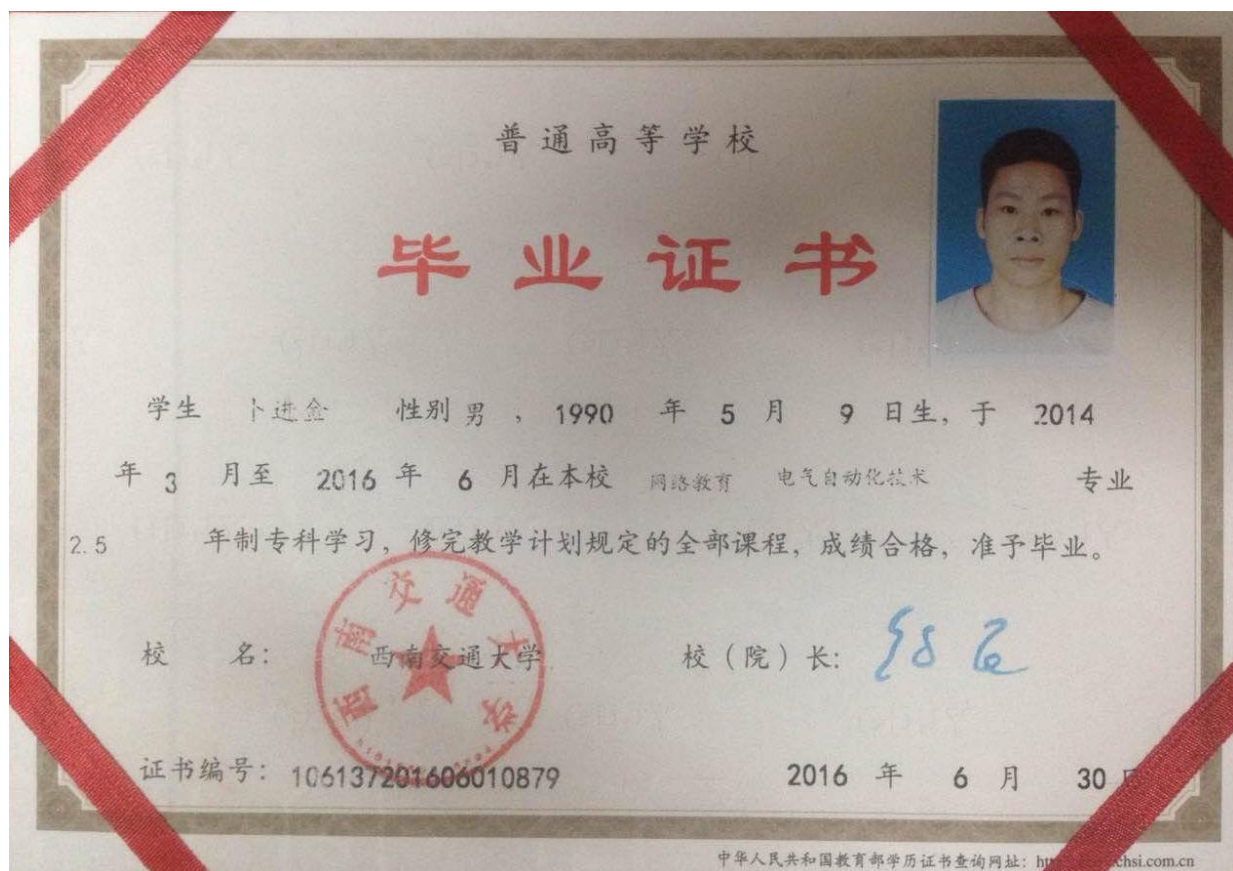 普通高等学校
毕业证书
学生 卜进金 性别 男 ，1990 年 5 月 9 日生，于 2014
年 3 月至 2016 年 6 月在本校 网络教育 电气自动化技术 专业
2.5 年制专科学习，修完教学计划规定的全部课程，成绩合格，准予毕业。
西南交通大学
校 名： 西南交通大学 校（院）长：
证书编号：106137201606010879 2016 年 6 月 30 日
中华人民共和国教育部学历证书查询网址：chsi.com.cn